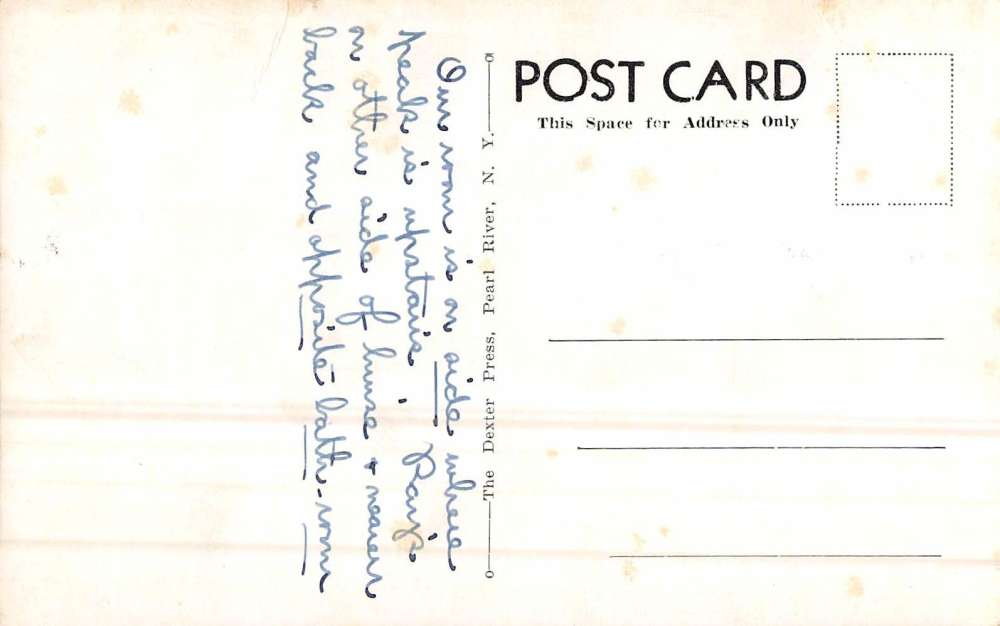 POST CARD
This Space for Address Only
The Dexter Press, Pearl River, N. Y.
Our room is on side where
peak is upstairs. Ray's
on other side of house + nearer
back and opposite bath-room